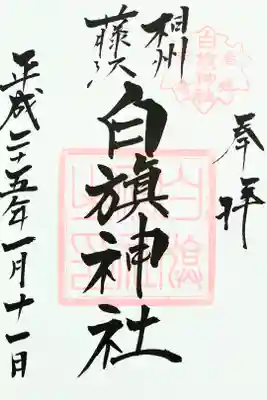 奉拝
相州
藤沢
白旗神社
平成二十五年一月十一日